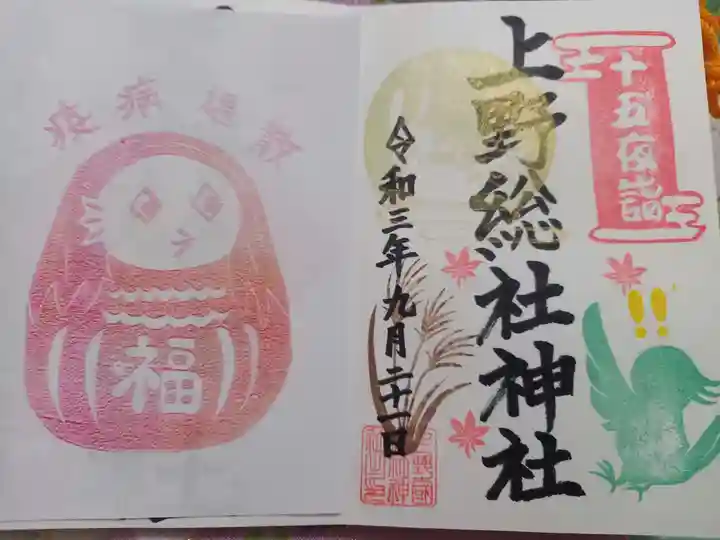 十五夜詣
上野総社神社
!!
令和三年九月二十一日
疫病退散
福